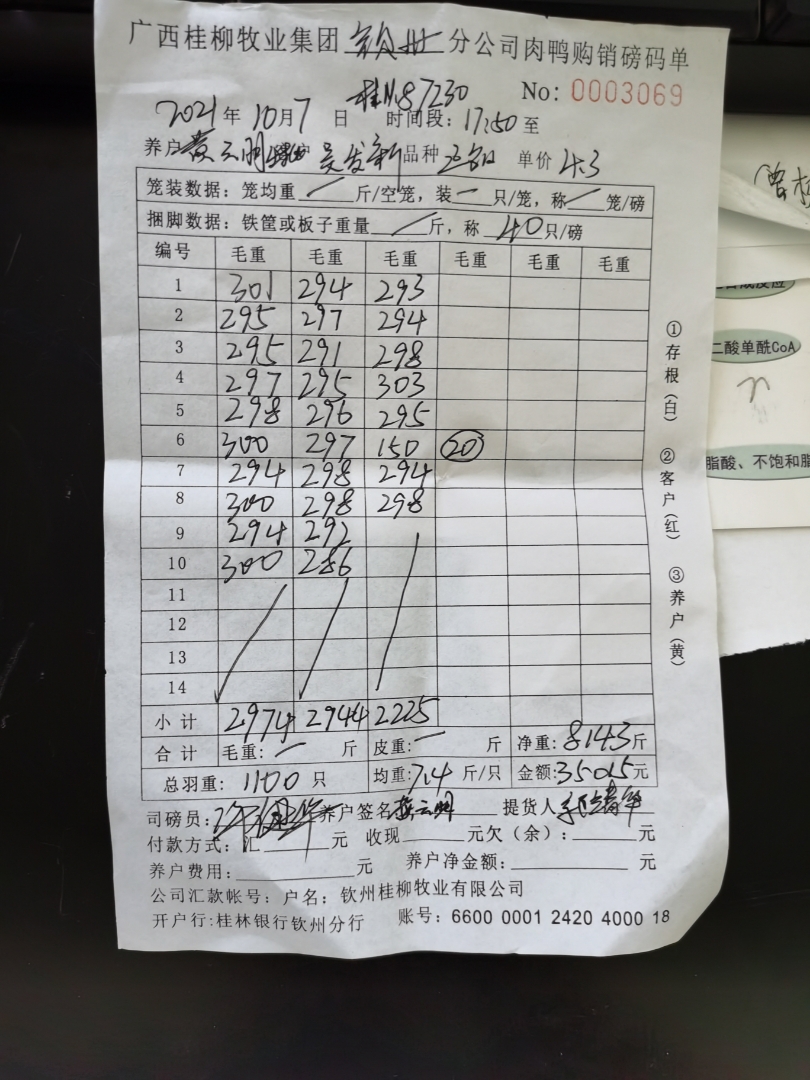 广西桂柳牧业集团 钦州 分公司肉鸭购销磅码单
桂N87230 No: 0003069
2021年10月7日 时间段: 17:50至
养户 黄云明 吴发新 品种 单价 4.3
笼装数据: 笼均重 / 斤/空笼, 装 一 只/笼, 称 / 笼/磅
捆脚数据: 铁筐或板子重量 / 斤, 称 40 只/磅
编号 毛重 毛重 毛重 毛重 毛重 毛重
1 301 294 293
2 295 297 294
3 295 291 298
4 297 295 303
5 298 296 295
6 300 297 150 20
7 294 298 294
8 300 298 298
9 294 292
10 300 286
11
12
13
14
小计 2974 2944 2225
合计 毛重: 一 斤 皮重: 一 斤 净重: 8143斤
总羽重: 1100 只 均重: 7.4 斤/只 金额: 35015元
司磅员: 养户签名 黄云明 提货人
付款方式: 汇 元 收现 元欠(余): 元
养户费用: 元 养户净金额: 元
公司汇款帐号: 户名: 钦州桂柳牧业有限公司
开户行: 桂林银行钦州分行 账号: 6600 0001 2420 4000 18
①存根(白) ②客户(红) ③养户(黄)
二酸单酰CoA
脂酸、不饱和脂